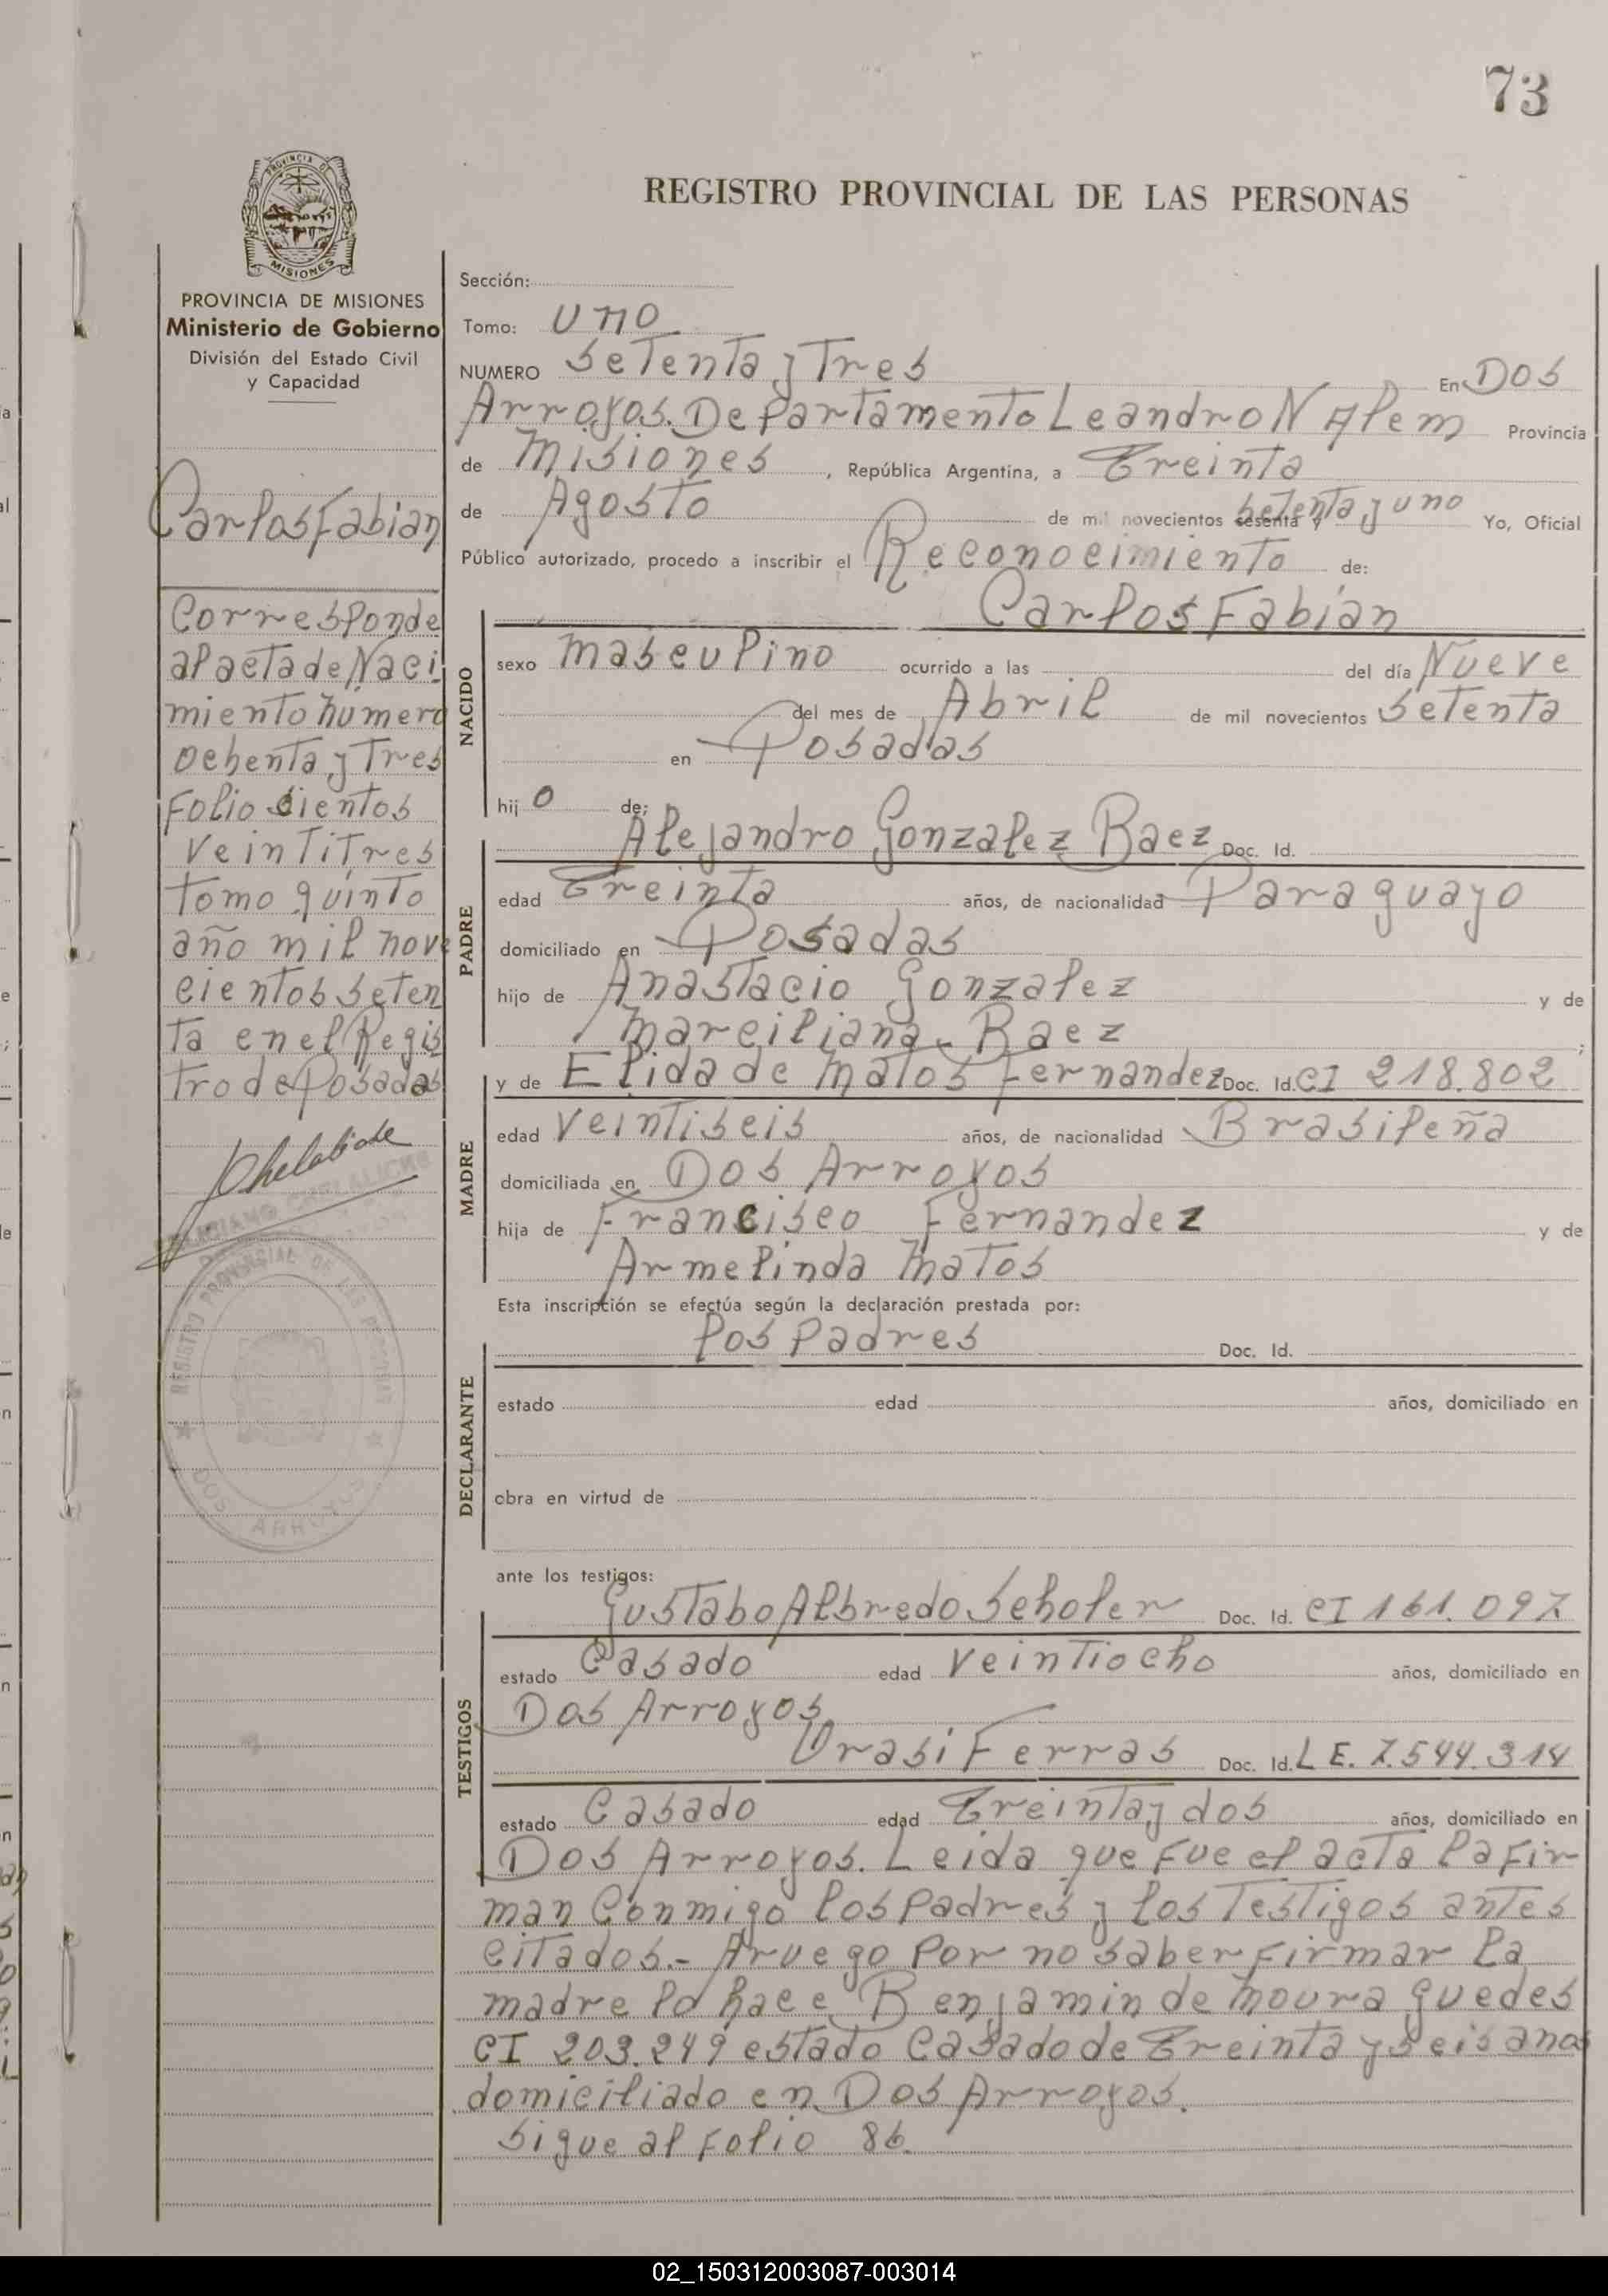 73
REGISTRO PROVINCIAL DE LAS PERSONAS
PROVINCIA DE
MISIONES
PROVINCIA DE MISIONES
Ministerio de Gobierno
División del Estado Civil
y Capacidad
Carlos Fabian
Corresponde
al acta de Naci
miento Numero
Ochenta y Tres
Folio cientos
veintitres
tomo quinto
año mil nove
cientos seten
ta en el Regis
tro de Posadas
REGISTRO PROVINCIAL DE LAS PERSONAS
DOS ARROYOS
Sección:
Tomo: uno
NUMERO Setenta y Tres En Dos
Arroyos. Departamento Leandro N Alem Provincia
de Misiones, República Argentina, a Treinta
de Agosto de mil novecientos sesenta y setenta y uno Yo, Oficial
Público autorizado, procedo a inscribir el Reconocimiento de:
NACIDO
Carlos Fabián
sexo masculino ocurrido a las del día Nueve
del mes de Abril de mil novecientos Setenta
en Posadas
hijo de:
PADRE
Alejandro Gonzalez Baez Doc. Id.
edad Treinta años, de nacionalidad Paraguayo
domiciliado en Posadas
hijo de Anastacio Gonzalez y de
Marciliana Baez ;
MADRE
y de Elida de Matos Fernandez Doc. Id. CI 218.802
edad veintiseis años, de nacionalidad Brasileña
domiciliada en Dos Arroyos
hija de Francisco Fernandez y de
Armelinda Matos
Esta inscripción se efectúa según la declaración prestada por:
DECLARANTE
los padres Doc. Id.
estado edad años, domiciliado en
obra en virtud de
ante los testigos:
TESTIGOS
Gustabo Albredo Scholer Doc. Id. CI 161.097
estado Casado edad veintiocho años, domiciliado en
Dos Arroyos
Urasi Ferras Doc. Id. L E. 7.544.314
estado Casado edad Treinta y dos años, domiciliado en
Dos Arroyos. Leida que fue el acta la fir
man conmigo los padres y los Testigos antes
citados.- A ruego por no saber firmar la
madre lo hace Benjamin de Moura Guedes
CI 203.249 estado Casado de Treinta y seis anos
domiciliado en Dos Arroyos.
Sigue al Folio 86.
02_150312003087-003014